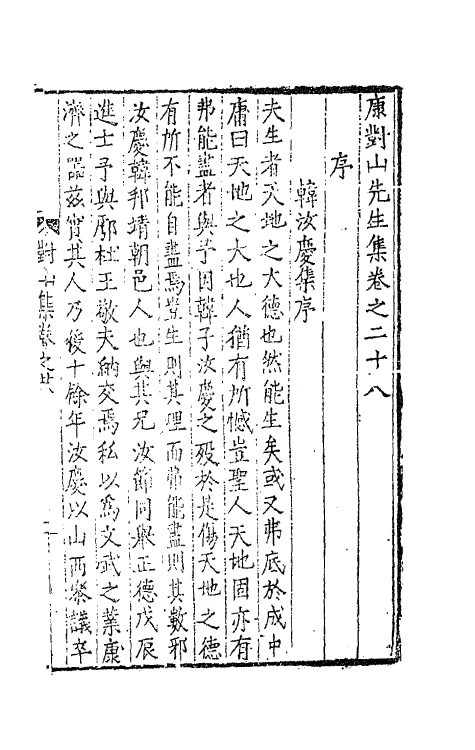 康對山先生集卷之二十八
序
韓汝慶集序
夫生者天地之大德也然能生矣或又弗底於成中
庸曰天地之大也人猶有所憾豈聖人天地固亦有
弗能盡者與予因韓子汝慶之殁於是傷天地之德
有所不能自盡焉豈生則其理而弗能盡則其數邪
汝慶韓邦靖朝邑人也與其兄汝節同舉正德戊辰
進士予與鄠杜王敬夫納交焉私以為文武之業康
濟之器兹實其人乃後十餘年汝慶以山西叅議卒
對山集卷之廿八
一